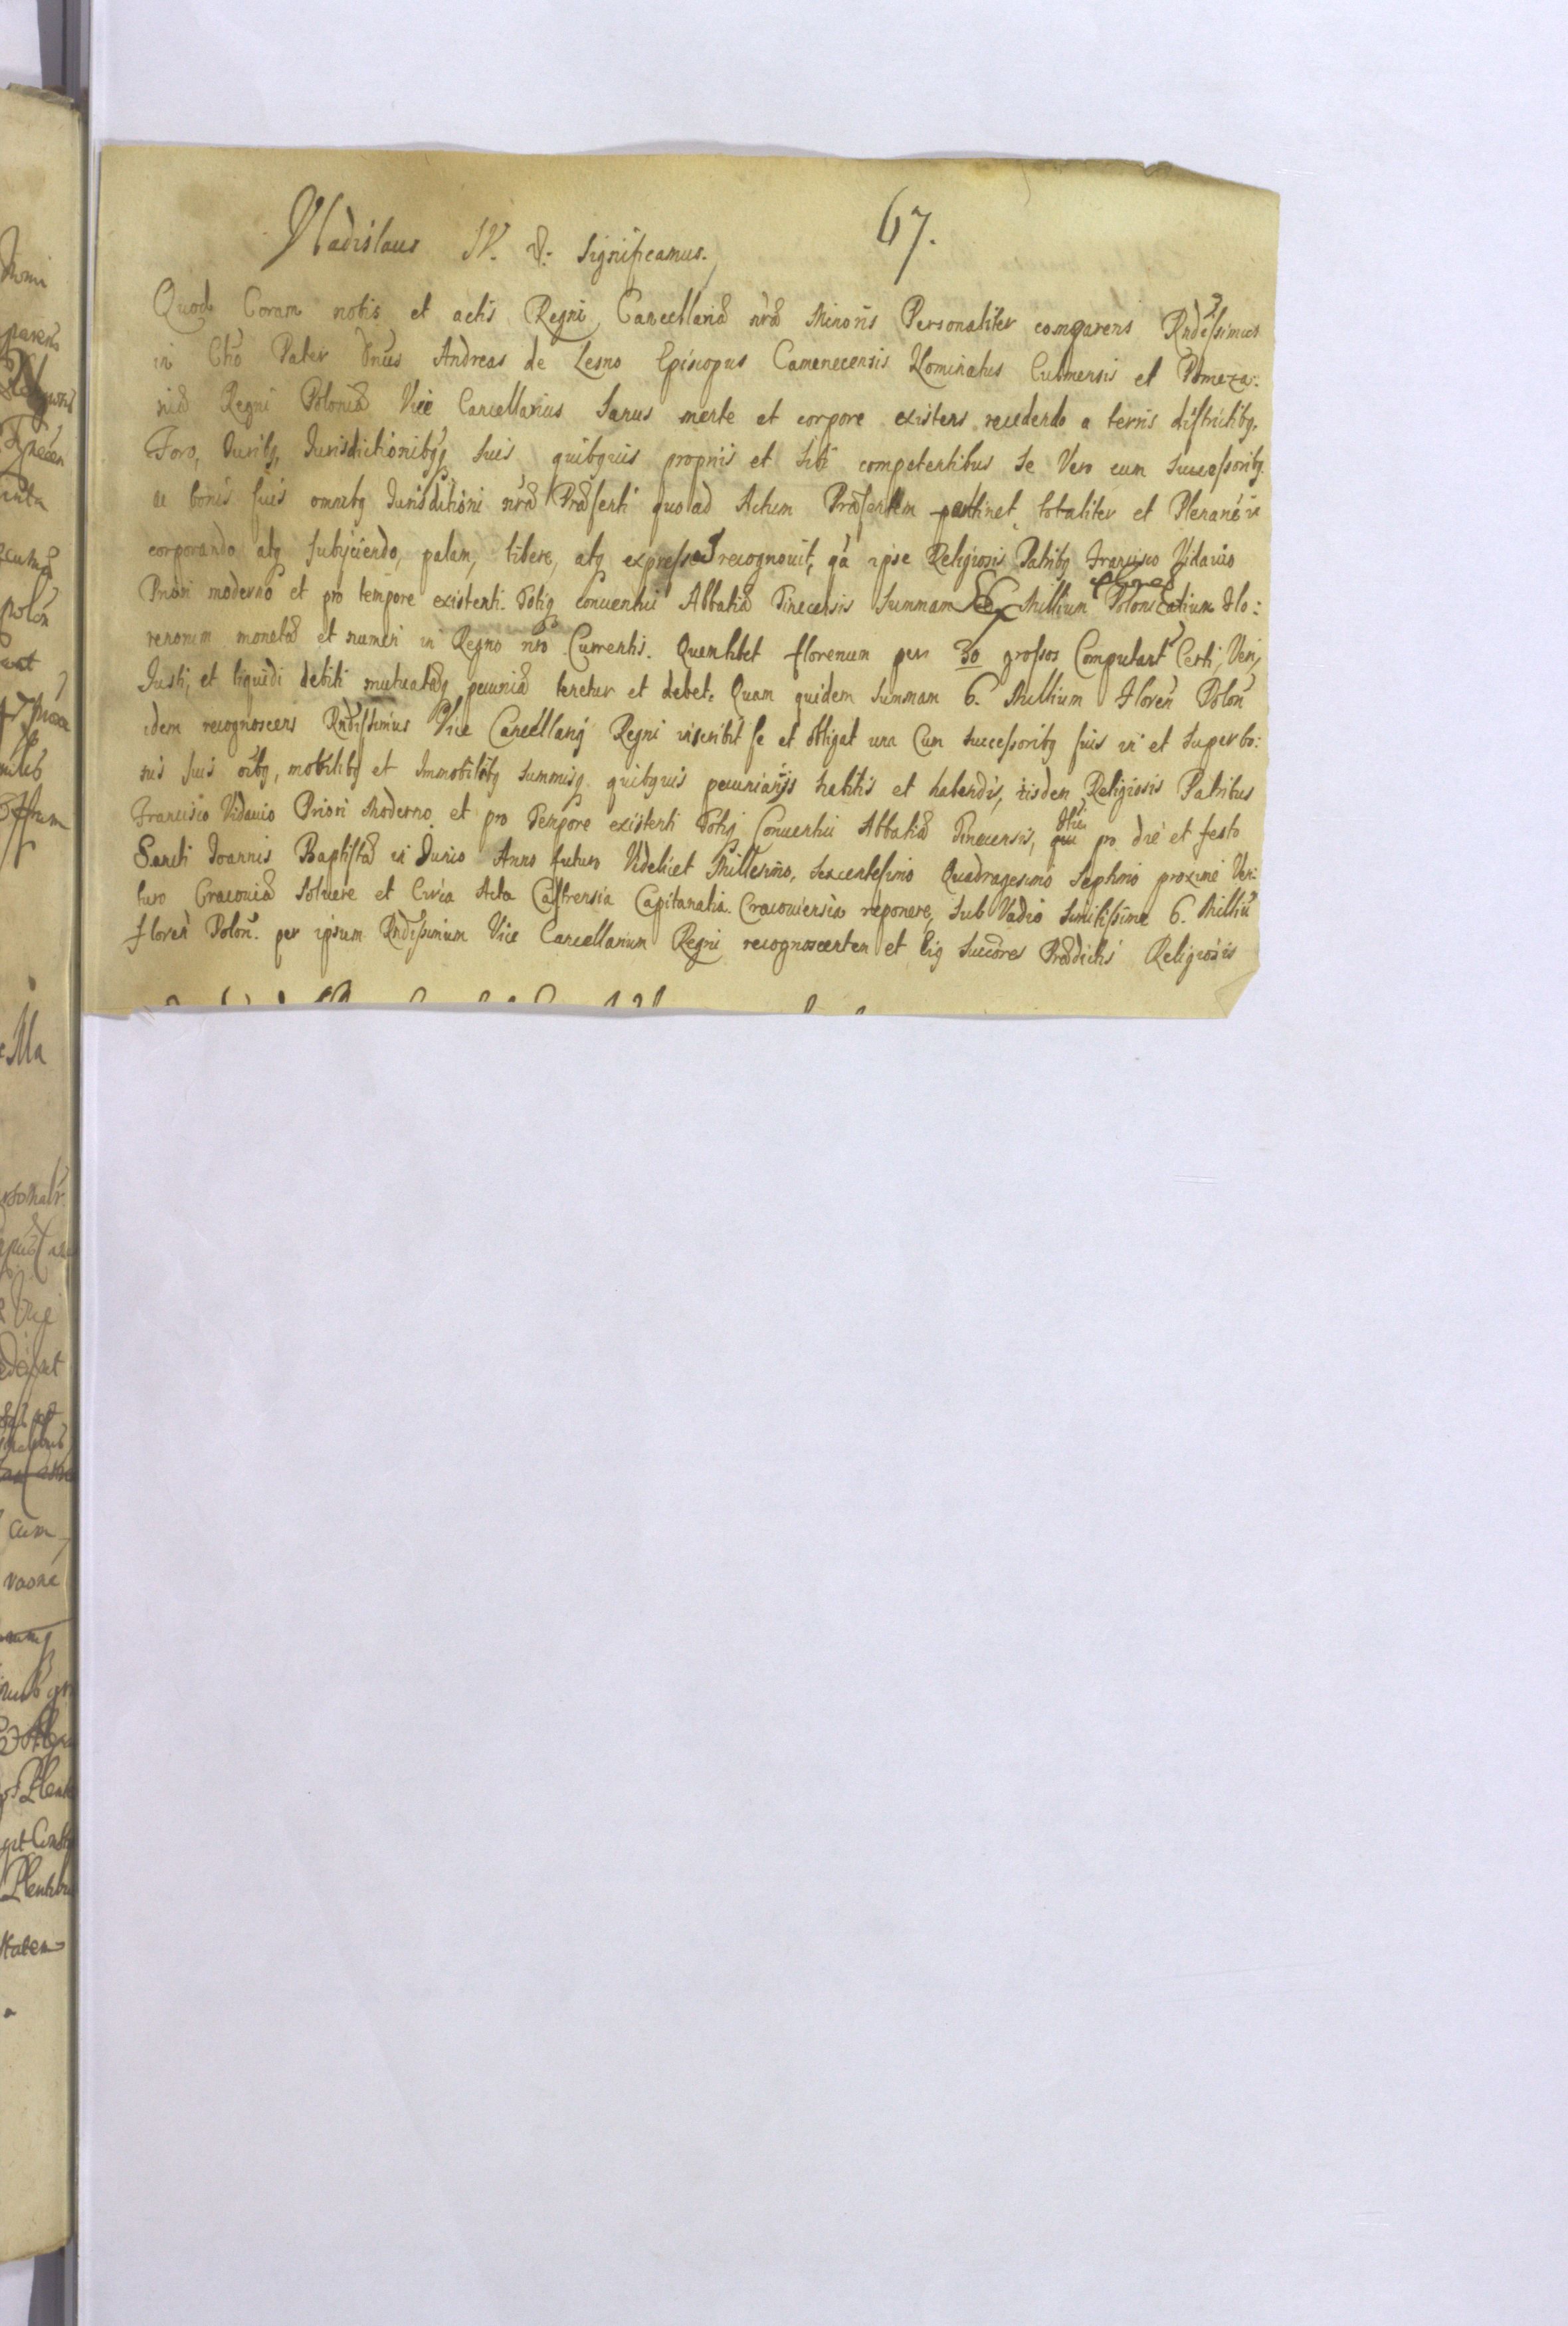 67.
Vladislaus IV. &: Significamus.
Quod Coram nobis et actis Regni Cancellariæ nræ Minoris Personaliter comparens Rndissimus
in Chō Pater Dnūs Andreas de Lesno Episcopus Camenecensis Nominatus Culmensis et Pomeza:
niæ Regni Poloniæ Vice Cancellarius Sanus mente et corpore existens recedendo a terris districtibq,
Foro, Juribq, Jurisdictionibqq suis quibqvis propriis et sibi competentibus se Vero cum successoribq.
ac bonis suis omnibq Jurisditioni nræ Præsenti quo ad Actum Præsentem pertinet totaliter et Plenarié in
corporando atq subijciendo, palam, libere, atq expresse recognovit, qā ipse Religiosis Patribq Francisco Vidavio
Priori moderno et pro tempore existenti. Totiq conventui Abbatiæ Tinecensis summam Sex Millium Polonicalium Flo:
renorum monetæ et numeri in Regno nrō Currentis. Quemlibet florenum per 30 grossos Computant Certi, Veri,
Justi, et liquidi debiti mutuatæq pecuniæ tenetur et debet. Quam quidem summam 6. Millium Floreñ Poloñ
idem recognoscens Rndissimus Vice Cancellariq Regni inscribit se et obligat una Cum successoribq suis in et super bo:
nis suis oībq, mobilibq et Immobilibq summisq. quibqvis pecuniarijs habitis et habendis, iisdem Religiosis Patribus
Francisco Vidavio Priori Moderno et pro Tempore existenti Totiq Conventui Abbatiæ Tinecensis, pro die et festo
Sancti Joannis Baptistæ in Junio Anno futuro Videlicet Millesimo, sexcentesimo Quadragesimo Septimo proximé Ven:
turo Cracoviæ Solvere et Circa Acta Castrensia Capitanalia Cracoviensia reponere, sub Vadio Similissime 6. Milliū
floreñ Poloñ. per ipsum Rndissimum Vice Cancellarium Regni recognoscentem et Eiq Succōres Prædictis Religiosis